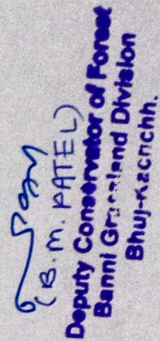 (B. M. PATEL)
Deputy Conservator of Forest
Banni Grassland Division
Bhuj-Kachchh.